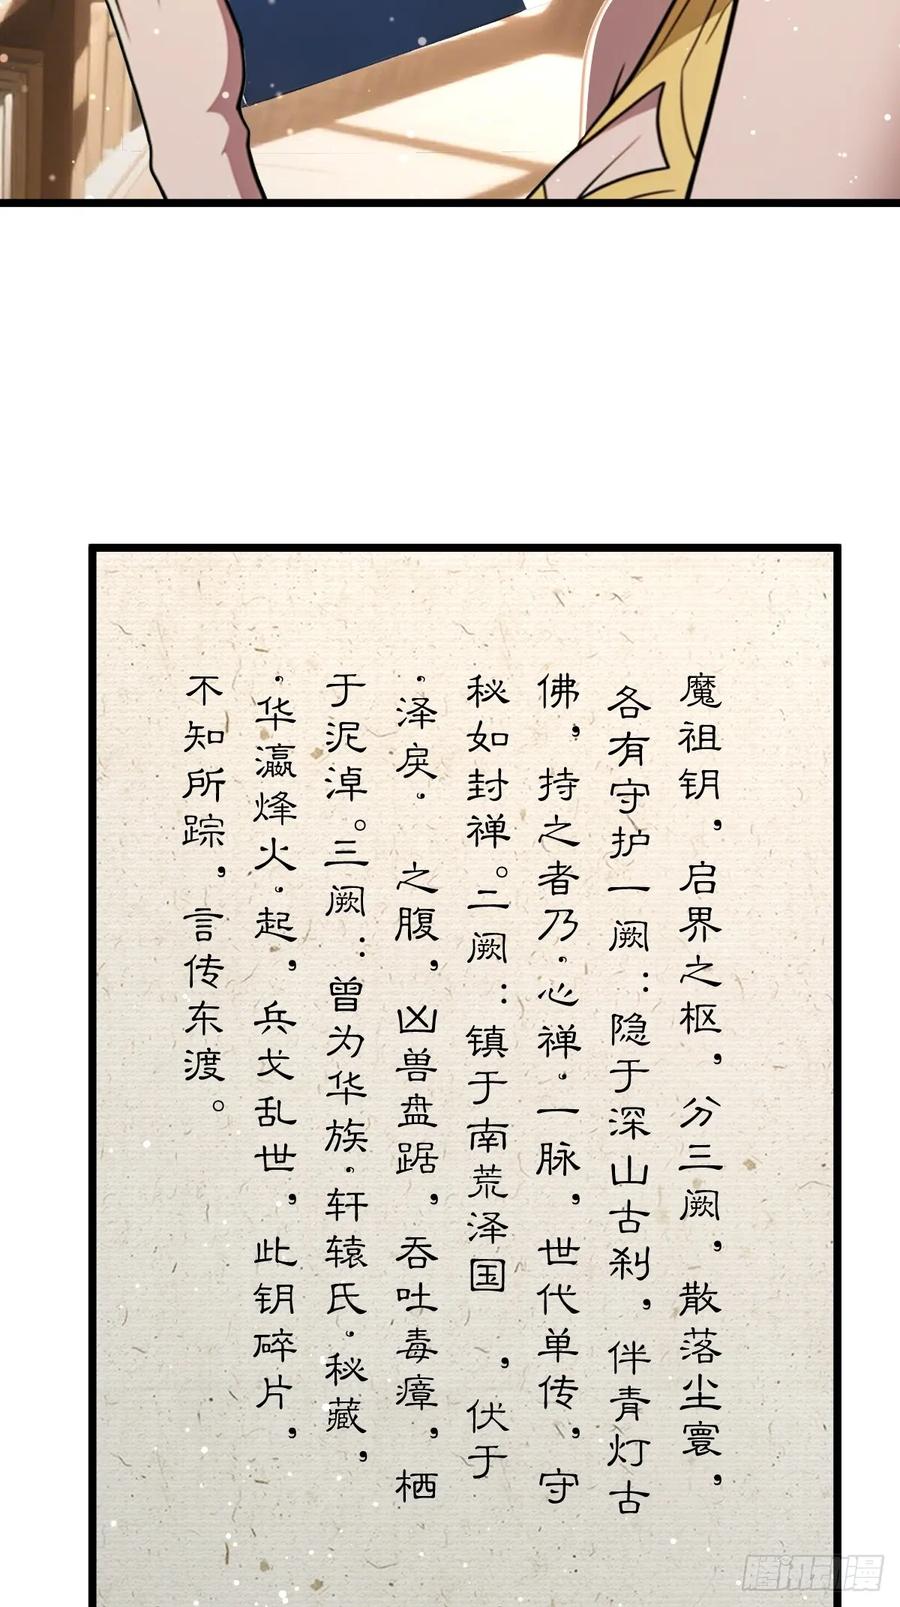 魔祖钥，启界之枢，分三阙，散落尘寰，
各有守护一阙：隐于深山古刹，伴青灯古
佛，持之者乃·心禅·一脉，世代单传，守
秘如封禅。二阙：镇于南荒泽国，伏于
·泽戾·之腹，凶兽盘踞，吞吐毒瘴，栖
于泥淖。三阙：曾为华族·轩辕氏·秘藏，
·华瀛烽火·起，兵戈乱世，此钥碎片，
不知所踪，言传东渡。
腾讯动漫